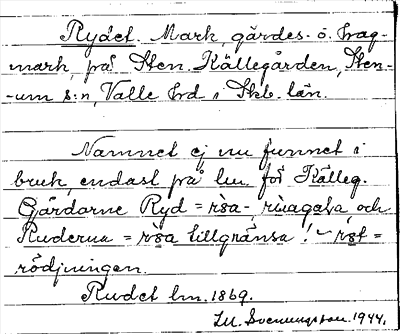 Rydet. Mark, gärdes- o. hag-
mark, på Sten. Källegården, Sten-
-um s:n, Valle hd i Skb. län.
Namnet ej nu funnet i
bruk, endast på lm. för Källeg.
Gårdarne Ryd = och
Ruderna = tillgränsa!
rödjningen.
Rudet lm. 1869.
1944.